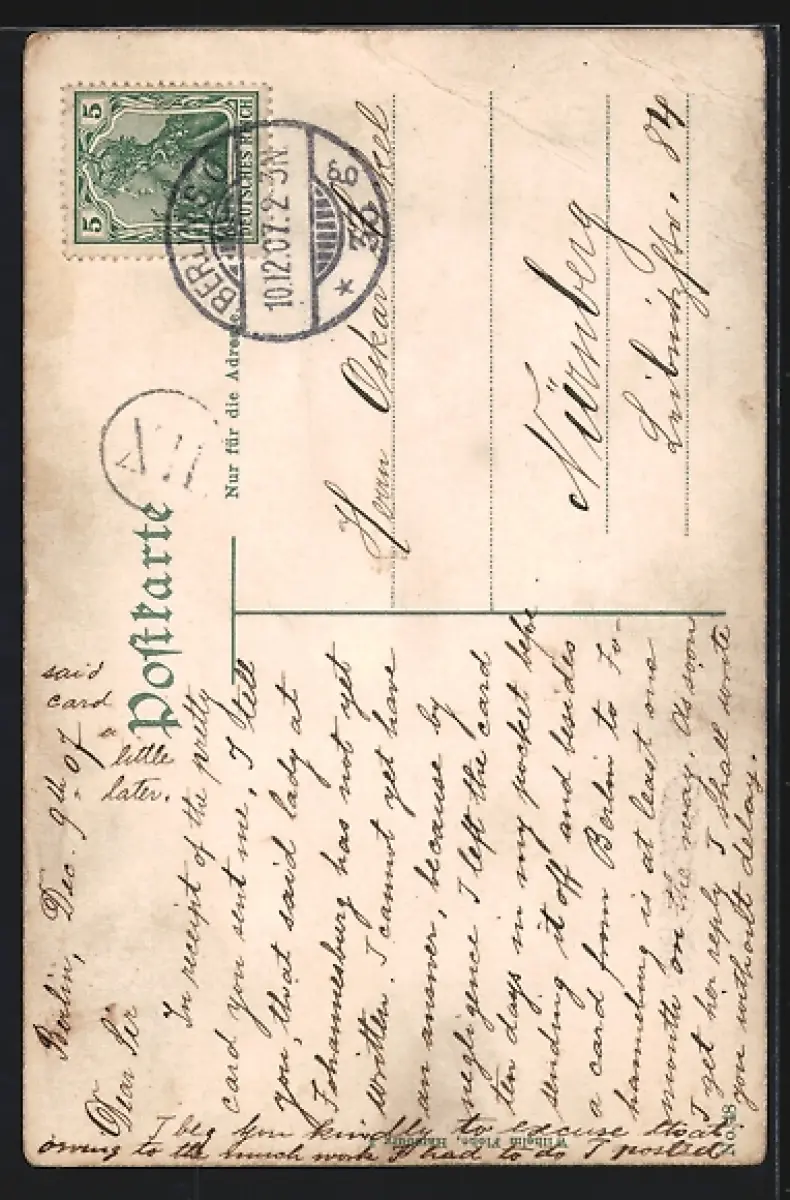 Postkarte
Nur für die Adresse
5 5
DEUTSCHES REICH
BERLIN S.O.
10.12.07.2-3N
* 36 g
Herrn Oskar
Nürnberg
Leibnitzstr. 84
Berlin, Dec. 9th 07.
Dear Sir
In receipt of the pretty
card you sent me, I tell
you, that said lady at
Johannesburg has not yet
written. I cannot yet have
an answer, because by
negligence I left the card
ten days in my pocket befo.
sending it off and besides
a card from Berlin to Jo-
hannesburg is at least one
month on the way. As soon
I get her reply I shall write
you without delay.
I beg you kindly to excuse that
owing to the much work I had to do I posted
said
card
a
little
later.
Wilhelm Flohr, Hamburg
No. 48